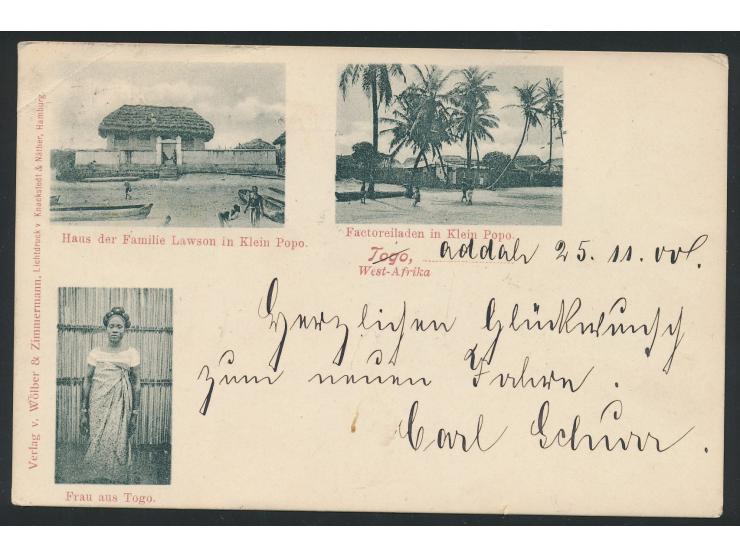 Verlag v. Wölber & Zimmermann, Lichtdruck v. Knackstedt & Näther, Hamburg.
Haus der Familie Lawson in Klein Popo.
Factoreiladen in Klein Popo.
Togo, addah 25. 11. 00
West-Afrika
Herzlichen Glückwunsch
zum neuen Jahre.
Carl Schurr.
Frau aus Togo.